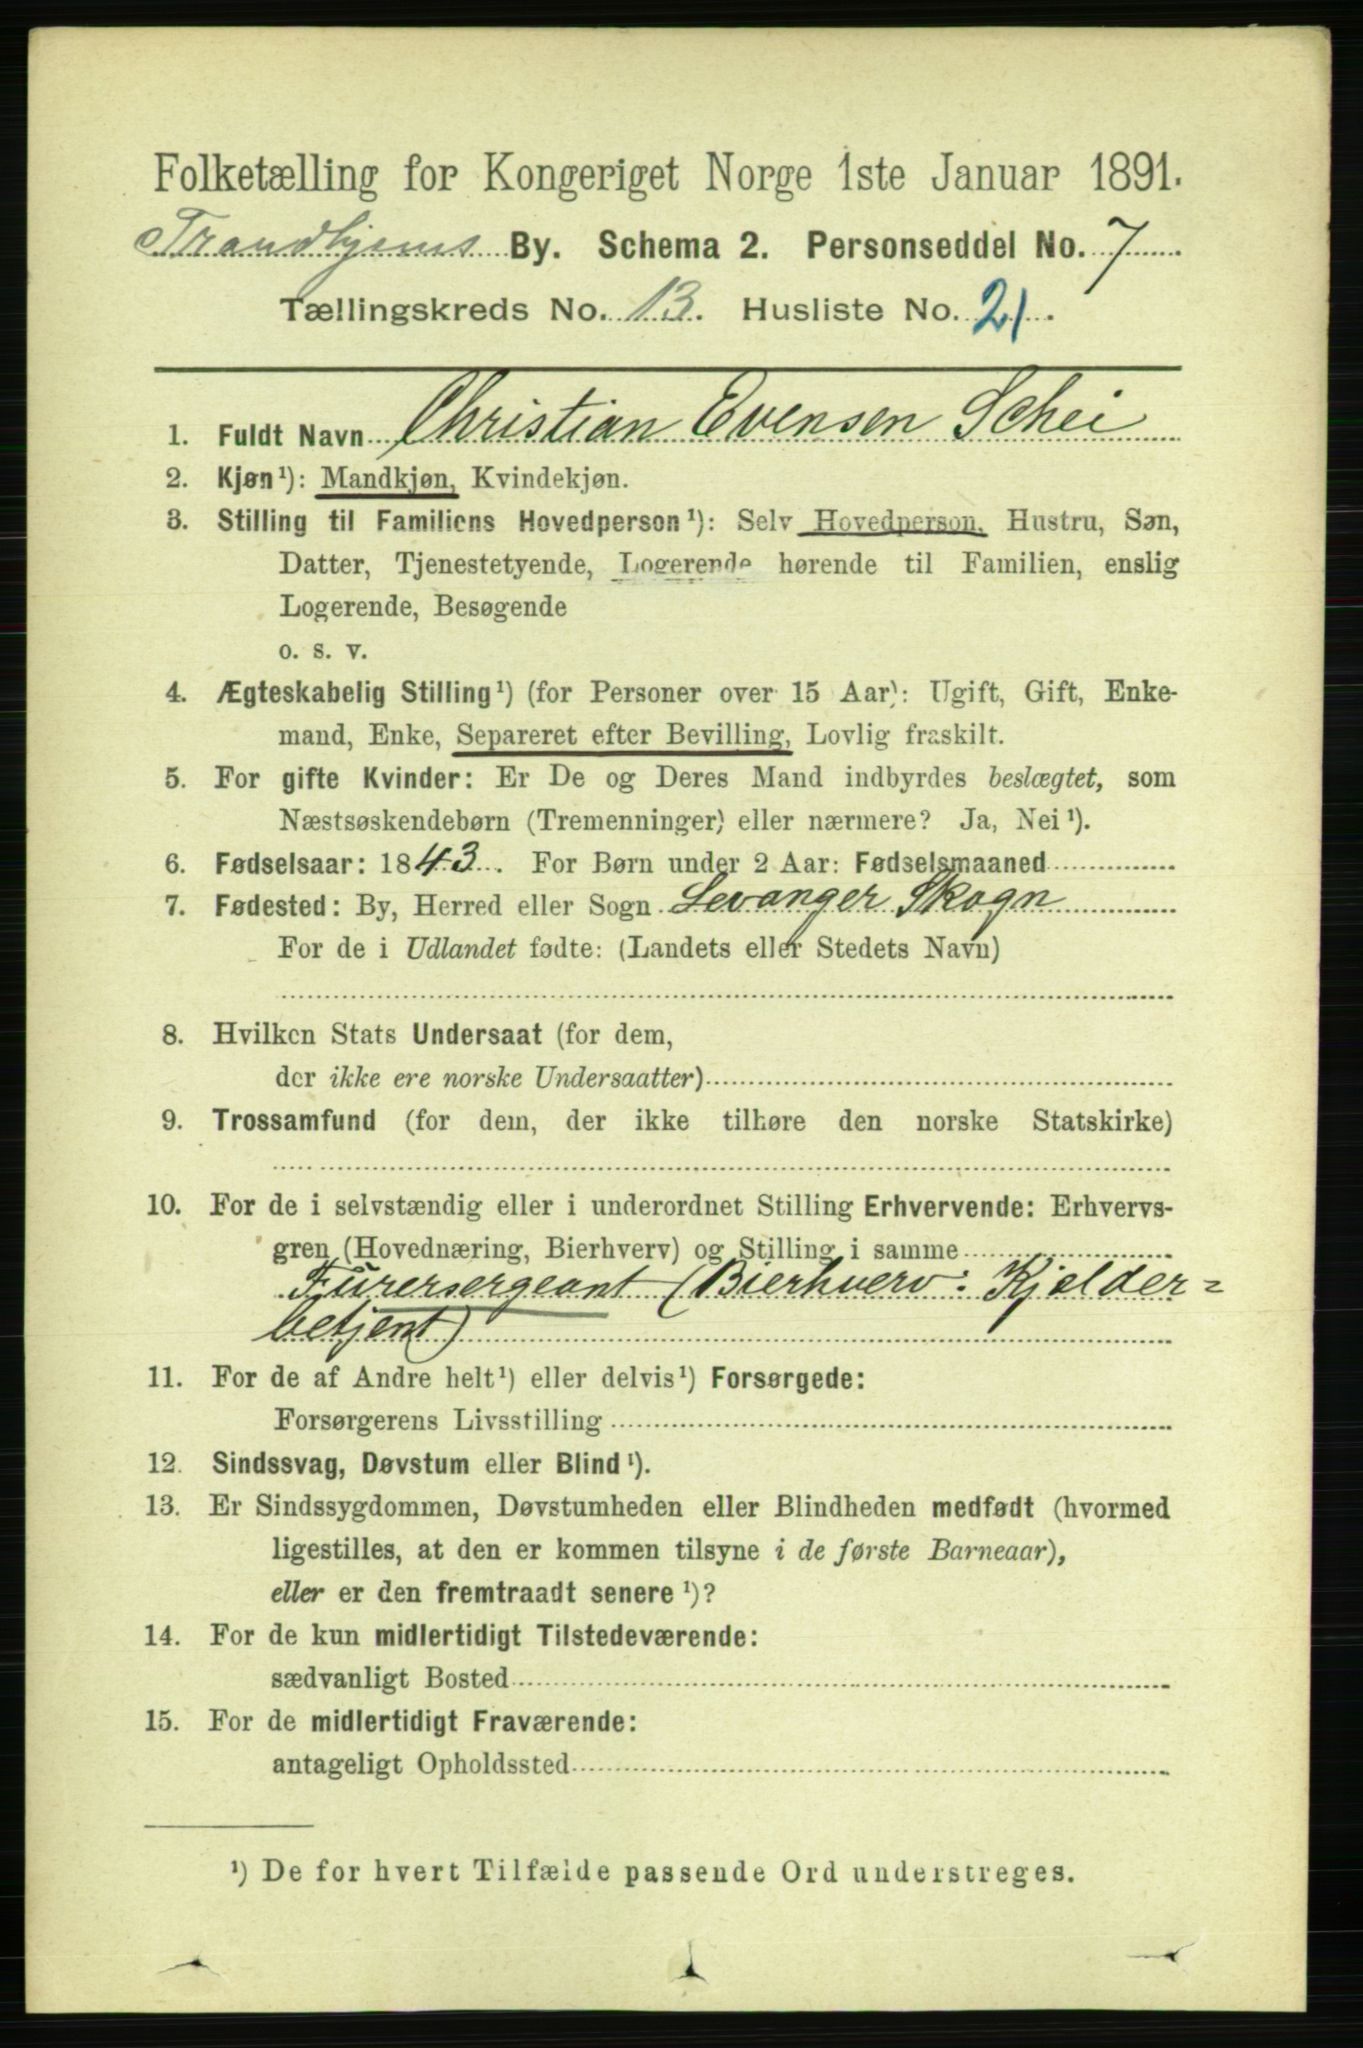 Folketælling for Kongeriget Norge 1ste Januar 1891.
Trondhjems By. Schema 2. Personseddel No. 7
Tællingskreds No. 13. Husliste No. 21.
1. Fuldt Navn Christian Evensen Schei
2. Kjøn¹): Mandkjøn, Kvindekjøn.
3. Stilling til Familiens Hovedperson¹): Selv Hovedperson, Hustru, Søn,
Datter, Tjenestetyende, Logerende hørende til Familien, enslig
Logerende, Besøgende
o. s. v.
4. Ægteskabelig Stilling¹) (for Personer over 15 Aar): Ugift, Gift, Enke-
mand, Enke, Separeret efter Bevilling, Lovlig fraskilt.
5. For gifte Kvinder: Er De og Deres Mand indbyrdes beslægtet, som
Næstsøskendebørn (Tremenninger) eller nærmere? Ja, Nei¹).
6. Fødselsaar: 1843. For Børn under 2 Aar: Fødselsmaaned
7. Fødested: By, Herred eller Sogn Levanger Skogn
For de i Udlandet fødte: (Landets eller Stedets Navn)
8. Hvilken Stats Undersaat (for dem,
der ikke ere norske Undersaatter)
9. Trossamfund (for dem, der ikke tilhøre den norske Statskirke)
10. For de i selvstændig eller i underordnet Stilling Erhvervende: Erhvervs-
gren (Hovednæring, Bierhverv) og Stilling i samme
Furersergeant (Bierhverv: Kjelder=
betjent)
11. For de af Andre helt¹) eller delvis¹) Forsørgede:
Forsørgerens Livsstilling
12. Sindssvag, Døvstum eller Blind¹).
13. Er Sindssygdommen, Døvstumheden eller Blindheden medfødt (hvormed
ligestilles, at den er kommen tilsyne i de første Barneaar),
eller er den fremtraadt senere¹)?
14. For de kun midlertidigt Tilstedeværende:
sædvanligt Bosted
15. For de midlertidigt Fraværende:
antageligt Opholdssted
¹) De for hvert Tilfælde passende Ord understreges.